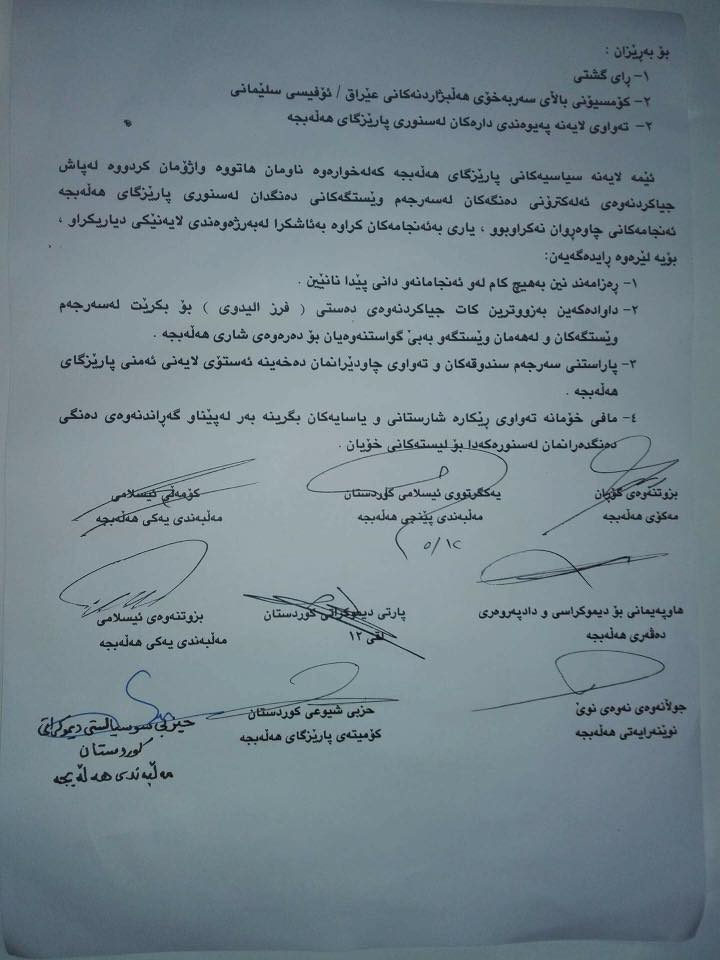 بۆ بەڕێزان :
١- ڕای گشتی
٢- کۆمسیۆنی باڵای سەربەخۆی هەڵبژاردنەکانی عێراق / ئۆفیسی سلێمانی
٢- تەواوی لایەنە پەیوەندی دارەکان لەسنوری پارێزگای هەڵەبجە
ئێمە لایەنە سیاسیەکانی پارێزگای هەڵەبجە کەلەخوارەوە ناومان هاتووە واژۆمان کردووە لەپاش
جیاکردنەوەی ئەلەکترۆنی دەنگەکان لەسەرجەم وێستگەکانی دەنگدان لەسنوری پارێزگای هەڵەبجە
ئەنجامەکانی چاوەڕوان نەکراوبوو ، یاری بەئەنجامەکان کراوە بەئاشکرا لەبەرژەوەندی لایەنێکی دیاریکراو ،
بۆیە لێرەوە ڕایدەگەیەن:
١- ڕەزامەند نین بەهیچ کام لەو ئەنجامانەو دانی پێدا نانێین .
٢- داوادەکەین بەزووترین کات جیاکردنەوەی دەستی ( فرز الیدوی ) بۆ بکرێت لەسەرجەم
وێستگەکان و لەهەمان وێستگەو بەبێ گواستنەوەیان بۆ دەرەوەی شاری هەڵەبجە .
٣- پاراستنی سەرجەم سندوقەکان و تەواوی چاودێرانمان دەخەینە ئەستۆی لایەنی ئەمنی پارێزگای
هەڵەبجە .
٤- مافی خۆمانە تەواوی ڕێکارە شارستانی و یاسایەکان بگرینە بەر لەپێناو گەڕاندنەوەی دەنگی
دەنگدەرانمان لەسنورەکەدا بۆ لیستەکانی خۆیان .
بزوتنەوەی گۆڕان یەکگرتووی ئیسلامی کوردستان کۆمەڵی ئیسلامی
مەکۆی هەڵەبجە مەڵبەندی پێنجی هەڵەبجە مەڵبەندی یەکی هەڵەبجە
٥/١٤
هاوپەیمانی بۆ دیموکراسی و دادپەروەری پارتی دیموکراتی کوردستان بزوتنەوەی ئیسلامی
دەڤەری هەڵەبجە لقی ١٢ مەڵبەندی یەکی هەڵەبجە
جولاَنەوەی نەوەی نوێ حزبی شیوعی کوردستان حیزبی سوسیالستی دیموکراتی
نوێنەرایەتی هەڵەبجە کۆمیتەی پارێزگای هەڵەبجە کوردستان
مەڵبەندی هەڵەبجە